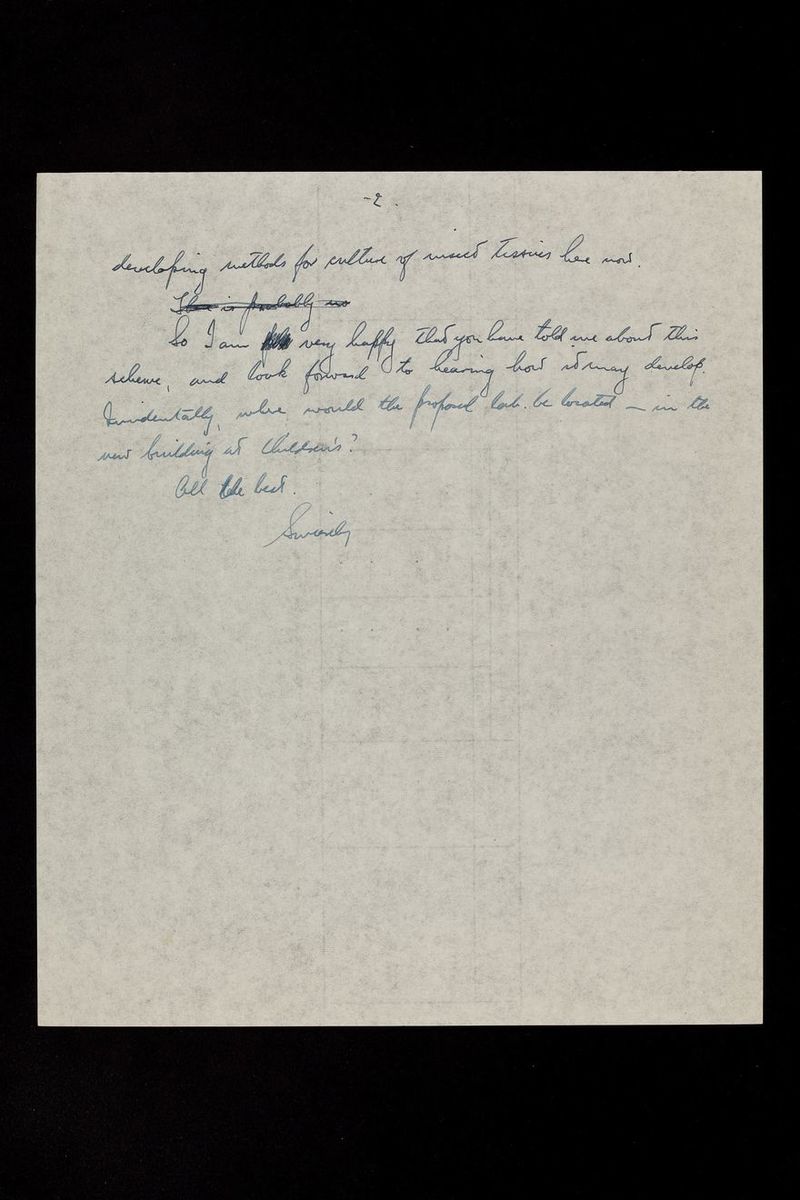 -2.
developing methods for culture of insect tissues here now.
There is probably no
So I am very happy that you have told me about this
scheme, and look forward to hearing how it may develop.
Incidentally, where would the proposed lab. be located — in the
new building at Children's?
All the best.
Sincerely